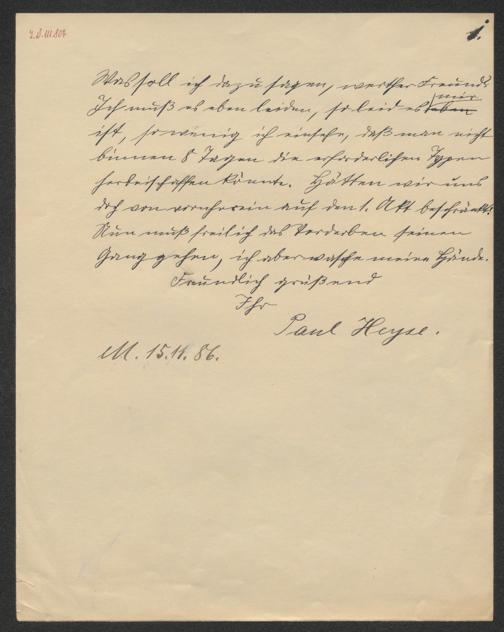 1.
Was soll ich dazu sagen, werther Freund?
Ich muß es eben leiden, so leid es eben mir
ist, so wenig ich einsehe, daß man nicht
binnen 8 Tagen die erforderlichen Typen
herbeischaffen könnte. Hätten wir uns
doch von vornherein auf den 1. Akt beschränkt!
Nun muß freilich das Verderben seinen
Gang gehen, ich aber wasche meine Hände.
Freundlich grüßend
Ihr
Paul Heyse.
M. 15.11. 86.